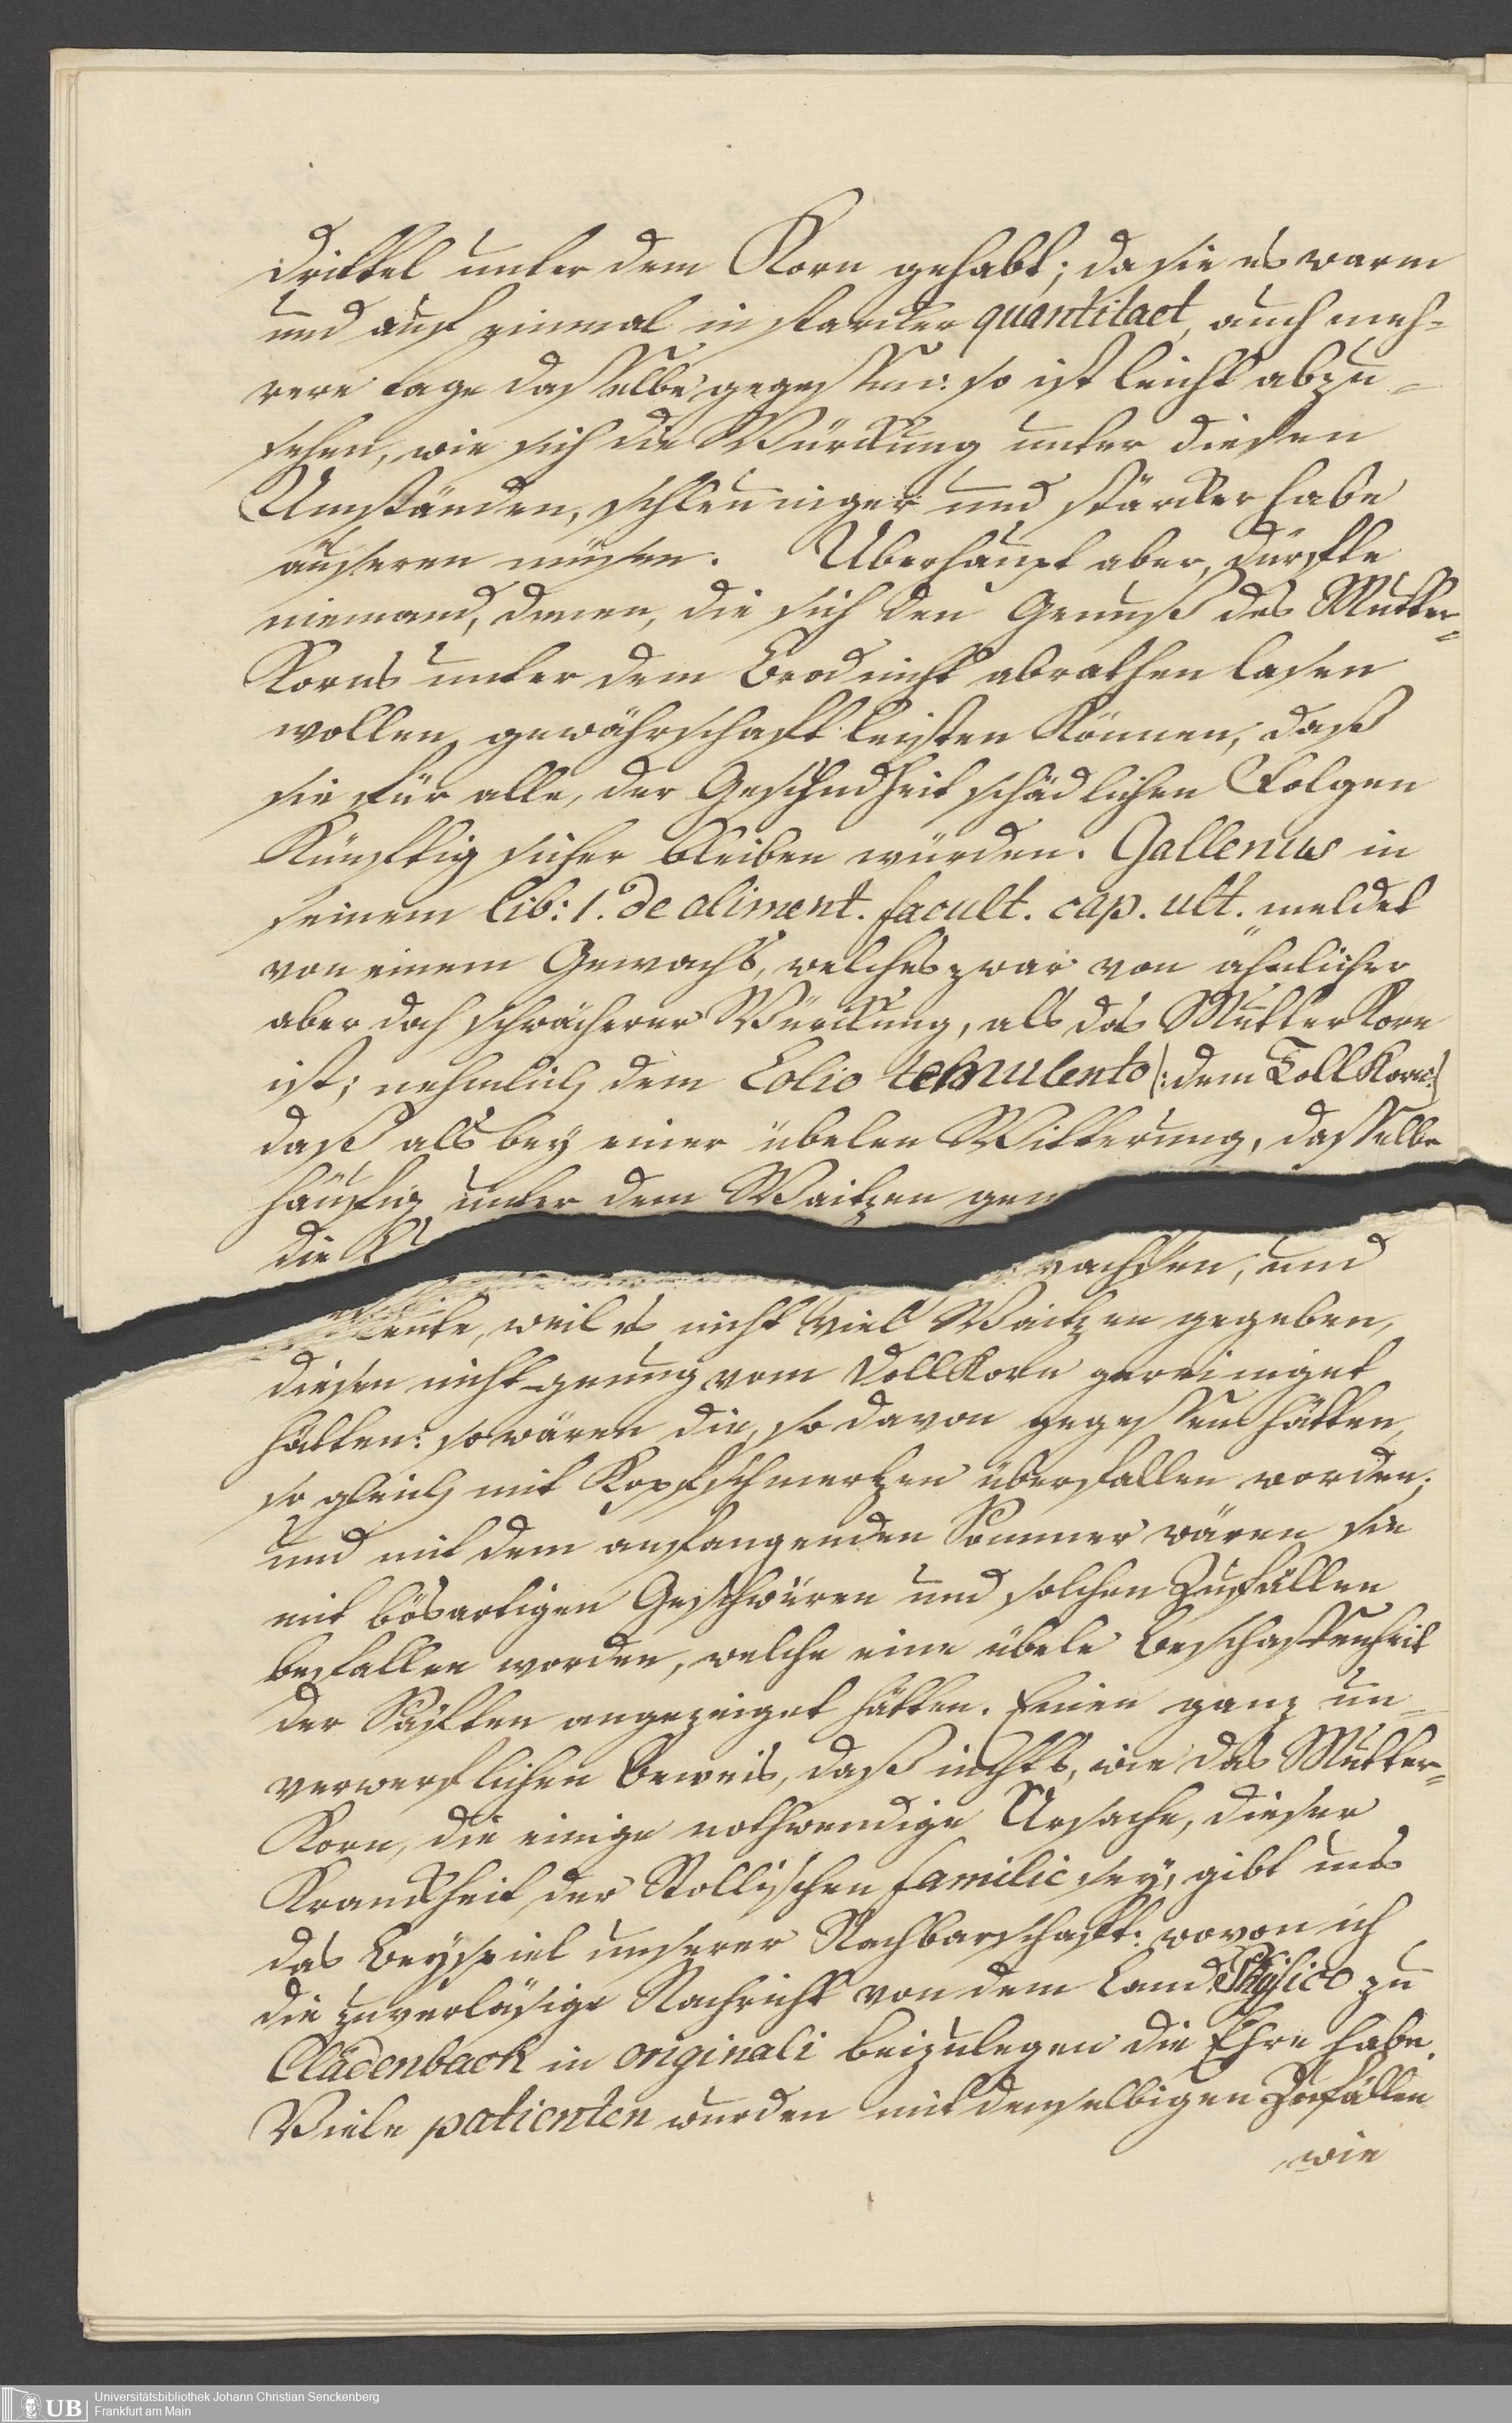 drittel unter dem Korn gehabt; da sie es warm
und auf einmal in starcker quantitaet, auch meh-
rere tage dasselbe gegessen: so ist leicht abzu-
sehen, wie sich die Würckung unter diesen
Umständen, schleuniger und stärcker habe
äusseren müsen. Uberhaupt aber, dürfte
niemand, denen, die sich den Genuß des Mutter-
Korns unter dem Brod nicht abrathen lasen
wollen, gewährschaft leisten Können, daß
sie für alle, der Gesundheit schädlichen Folgen
Künfftig sicher bleiben würden. Gallenus in
seinem lib: 1. de aliment. facult. cap. ult. meldet
von einem Gewachs, welches zwar von ähnlicher
aber doch schwächerer Würckung, als das Mutter Korn
ist; nehmlich dem Lolio temulento (: dem Toll Korn:)
daß als bey einer übelen Witterung, dasselbe
häufig unter dem Waitzen
die wachsen, und
Leute, weil es nicht viel Waitzen gegeben,
diesen nicht genung vom Dollkorn gereiniget
hätten: so wären die, so davon gegessen hätten,
so gleich mit Kopfschmertzen überfallen worden;
und mit dem anfangenden Sommer wären sie
mit bösartigen Geschwüren und solchen Zufällen
befallen worden, welche eine übele Beschaffenheit
der Säfften angezeiget hätten. Einen ganz un-
verwerflichen Beweis, daß nichts, wie das Mutter-
Korn, die einige nothwendige Ursache, dieser
Kranckheit der Stollischen familie sey, gibt uns
das Beyspiel unserer Nachbarschafft: wovon ich
die zuverläsige Nachricht von dem Land Physico zu
Cladenbach in originali beizulegen die Ehre habe.
Viele patienten wurden mit denselbigen Zufällen
wie
UB
Universitätsbibliothek Johann Christian Senckenberg
Frankfurt am Main